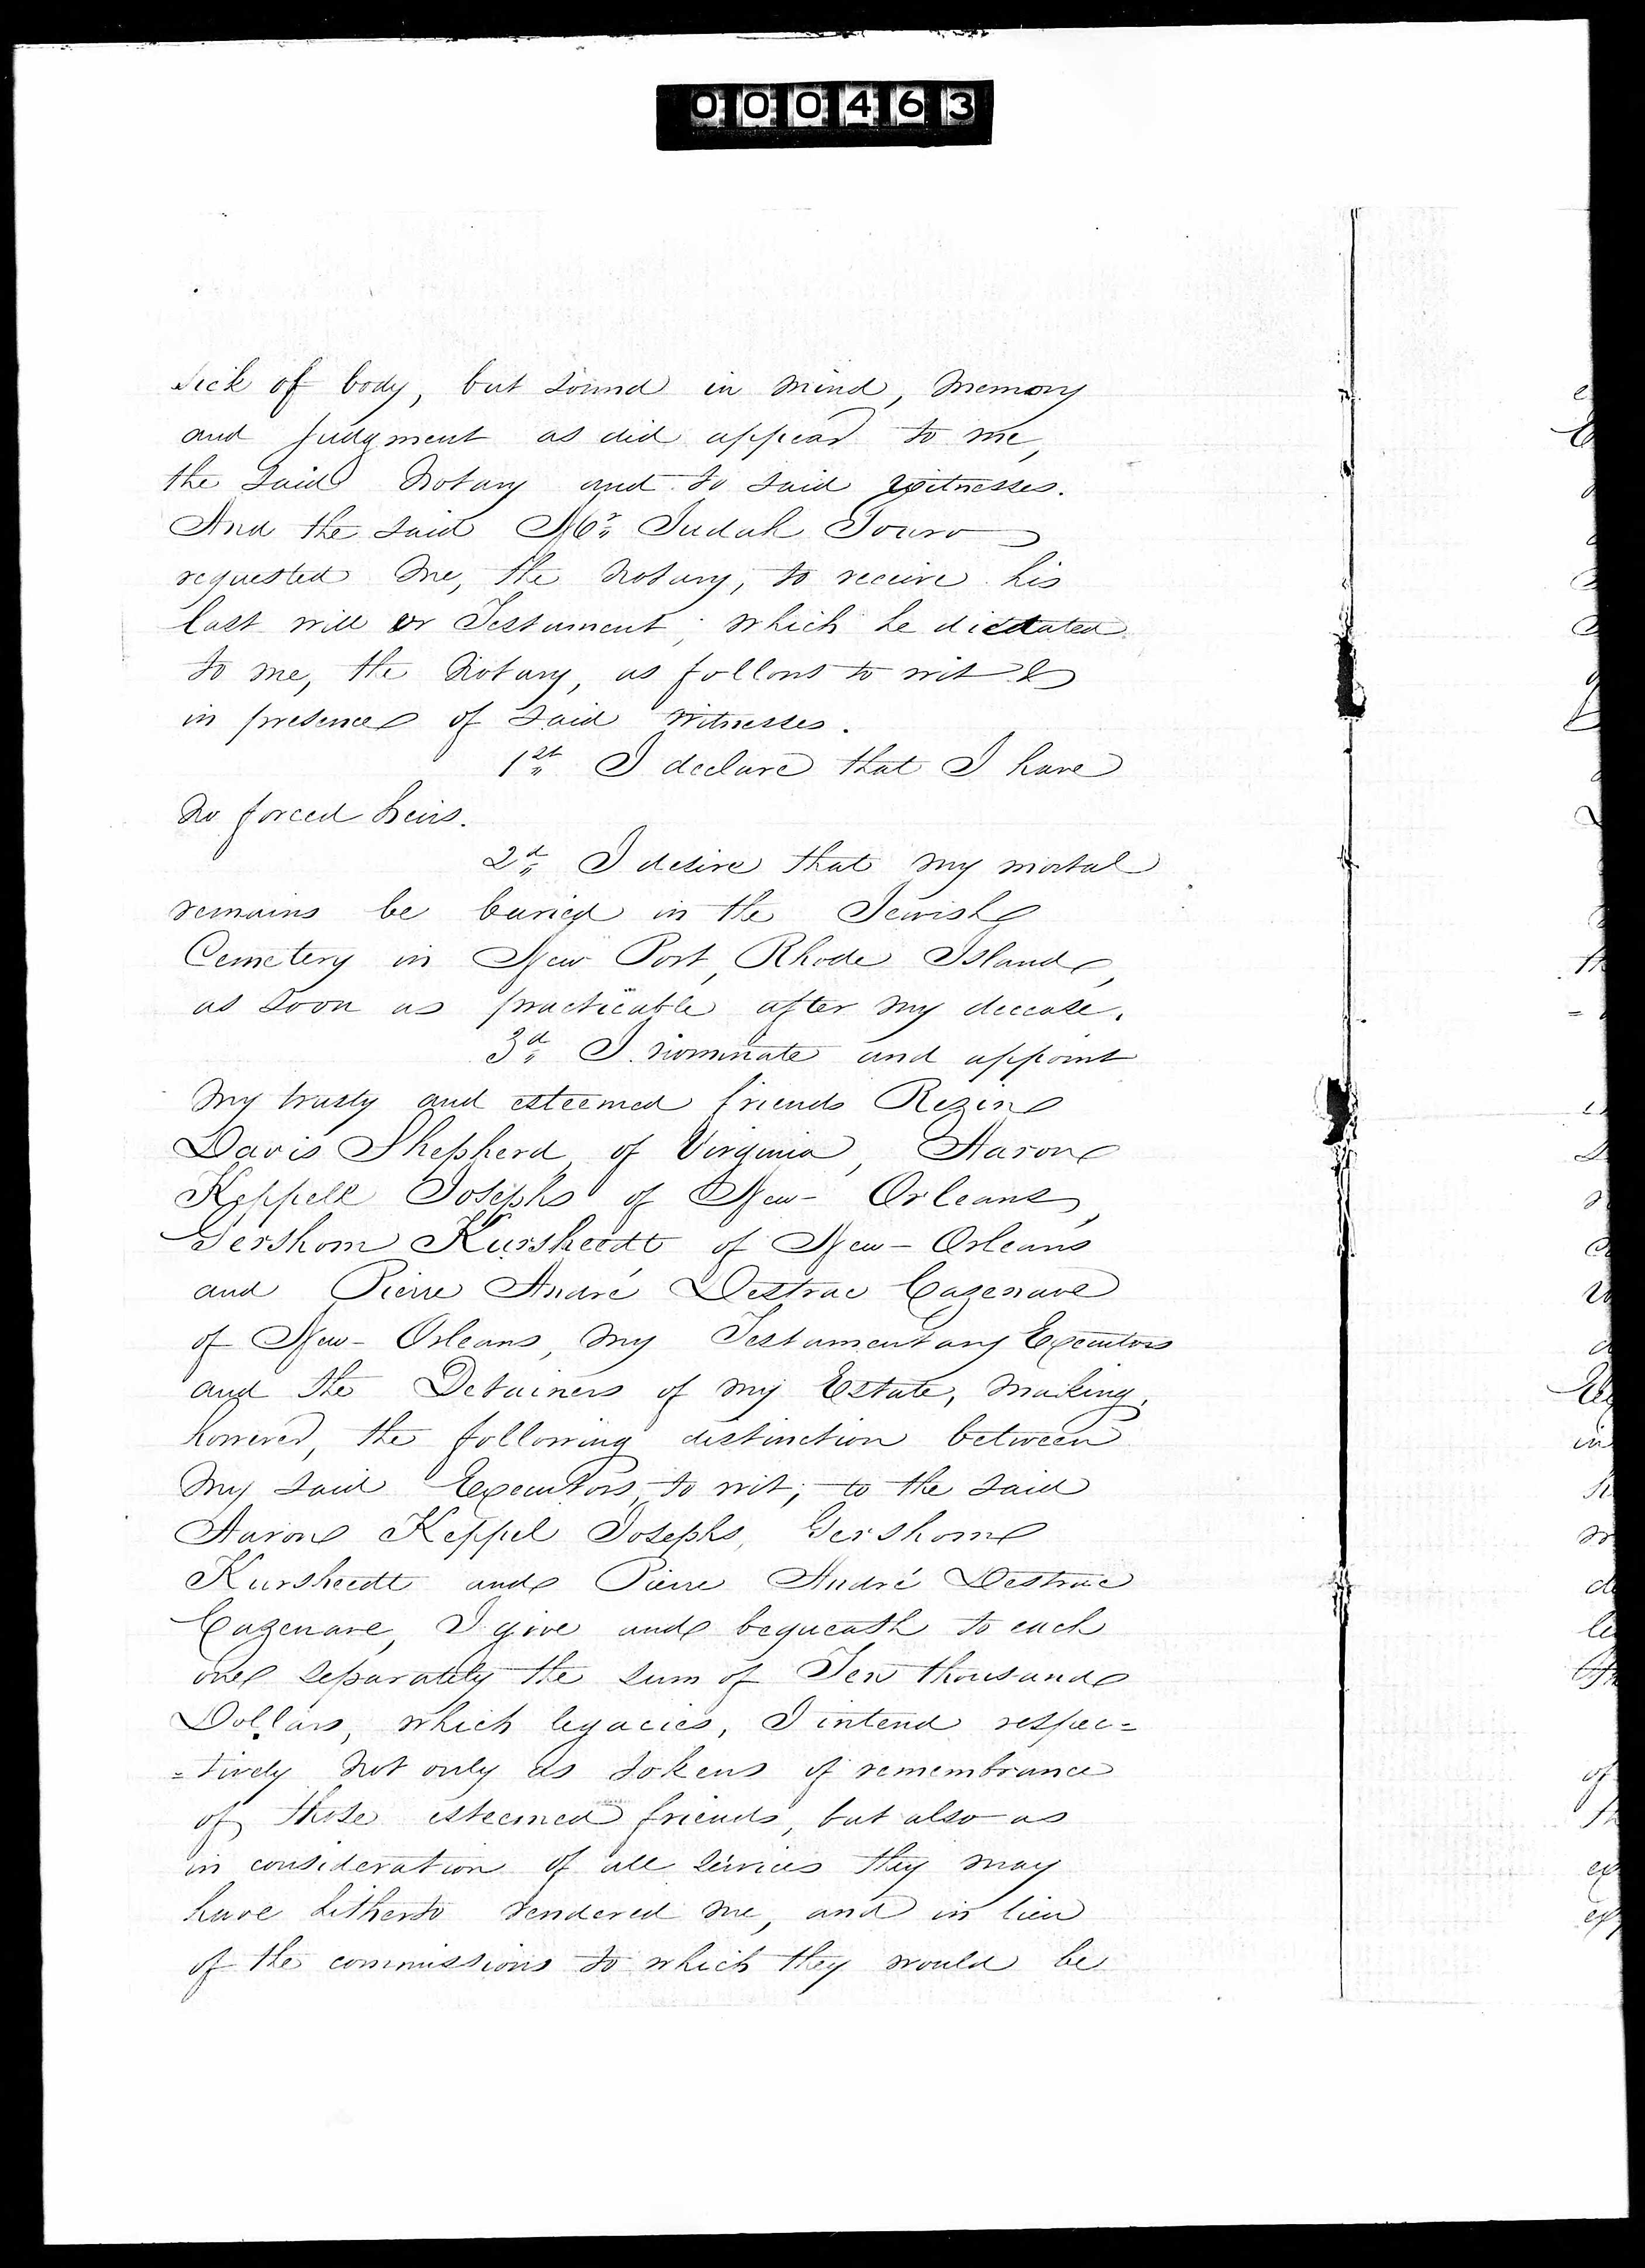 000463
sick of body, but sound in mind, memory
and judgment as did appear to me,
the said Notary and to said witnesses.
And the said Mr. Judah Touro
requested me, the Notary, to receive his
last will or Testament, which he dictated
to me, the Notary, as follows to wit &
in presence of said witnesses.
1st. I declare that I have
no forced heirs.
2d. I desire that my mortal
remains be buried in the Jewish
Cemetery in New Port, Rhode Island,
as soon as practicable after my decease.
3d. I nominate and appoint
my trusty and esteemed friends Rezin
Davis Shepherd, of Virginia, Aaron
Keppell Josephs of New-Orleans,
Gershom Kursheedt of New-Orleans
and Pierre André Destrac Cazenave
of New-Orleans, my Testamentary Executors
and the Detainers of my Estate, making,
however, the following distinction between
my said Executors, to wit; to the said
Aaron Keppel Josephs, Gershom
Kursheedt and Pierre André Destrac
Cazenave, I give and bequeath to each
one separately the sum of Ten thousand
Dollars, which legacies, I intend respec=
=tively not only as tokens of remembrance
of those esteemed friends, but also as
in consideration of all services they may
have hitherto rendered me, and in lieu
of the commissions to which they would be